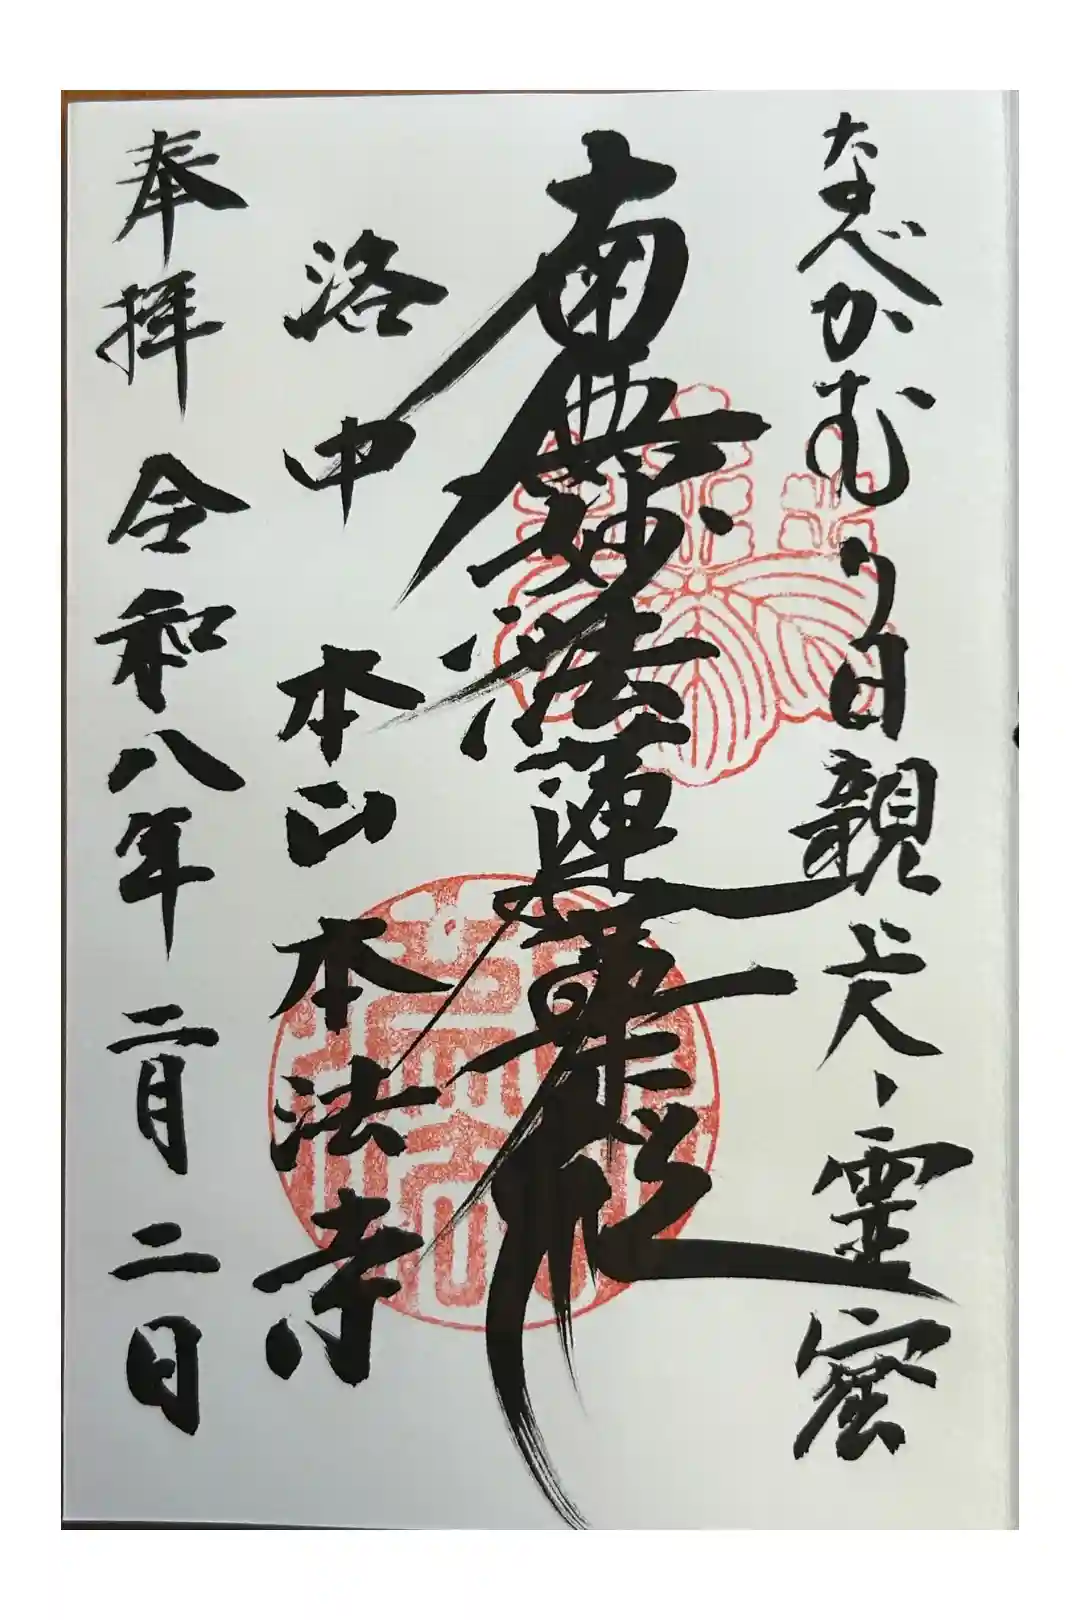 なべかむり日親上人霊窟
南無妙法蓮華経
洛中 本山 本法寺
奉拝 令和八年 二月 二日